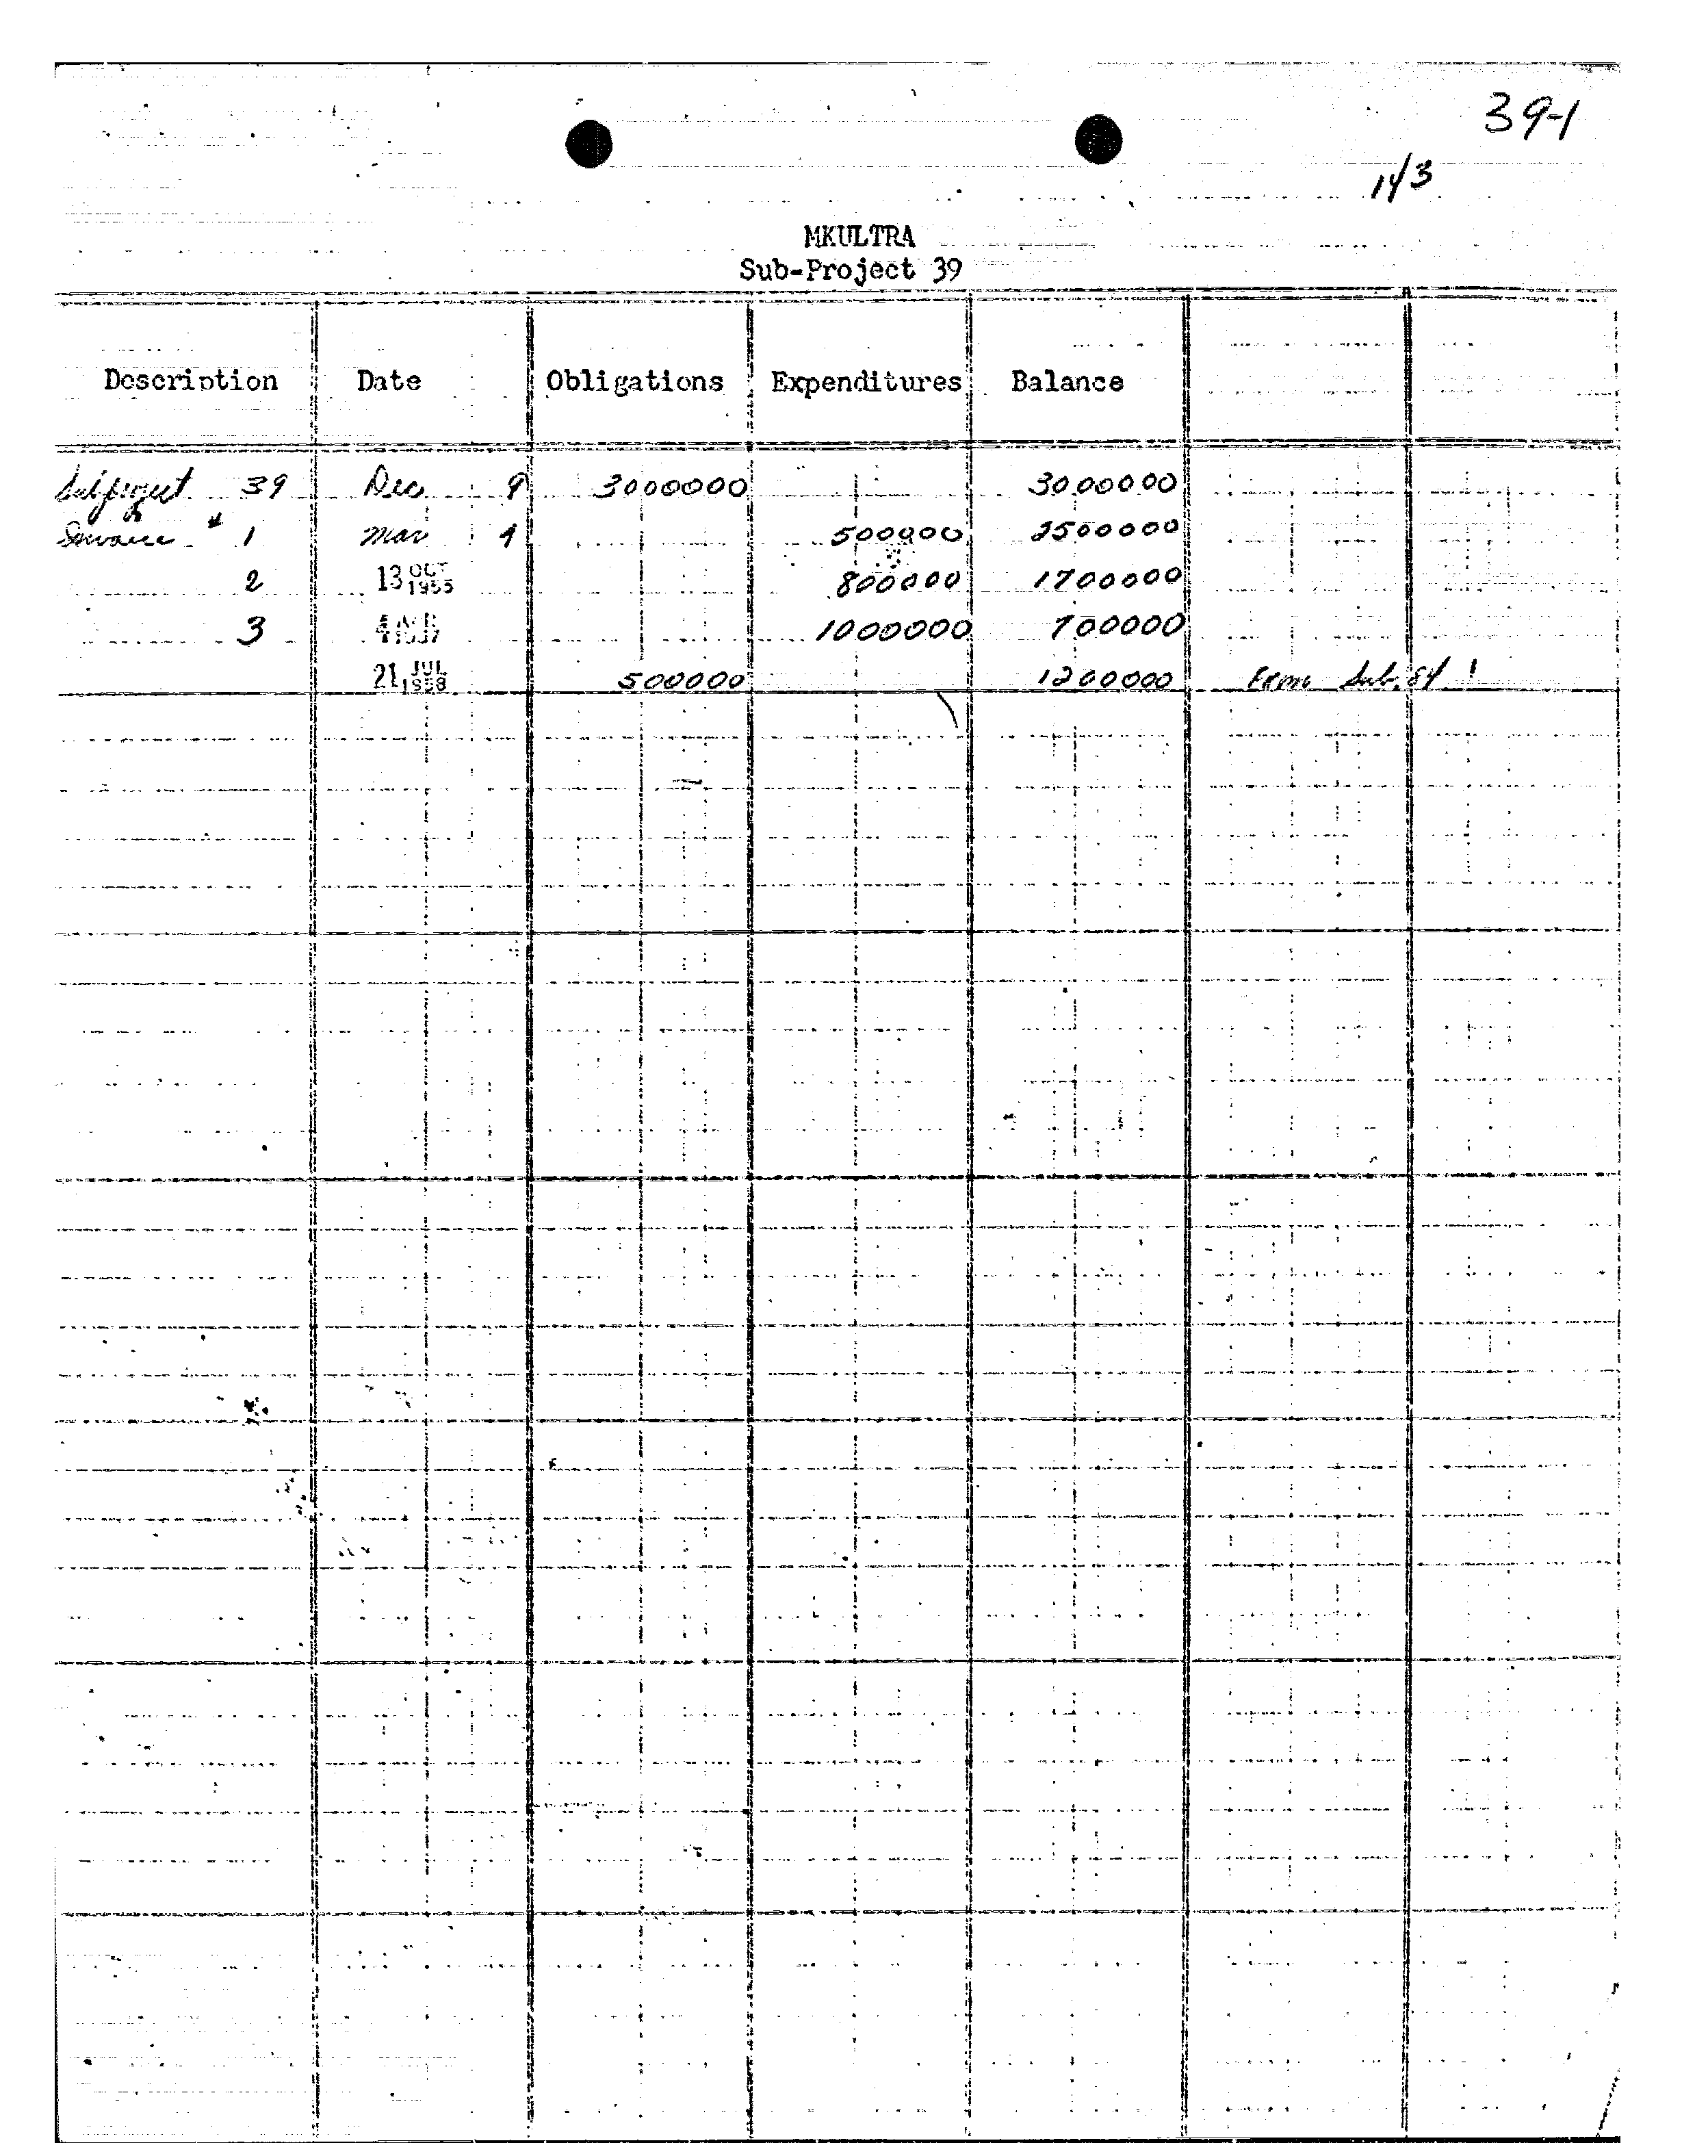 39-1
143
MKULTRA
Sub-Project 39
Description Date Obligations Expenditures Balance
Subproject 39 Dec 9 3000000 3000000
Invoice # 1 Mar 9 500000 2500000
2 13 OCT 1955 800000 1700000
3 4 1957 1000000 700000
21 JUL 1958 500000 1200000 From Sub. 84